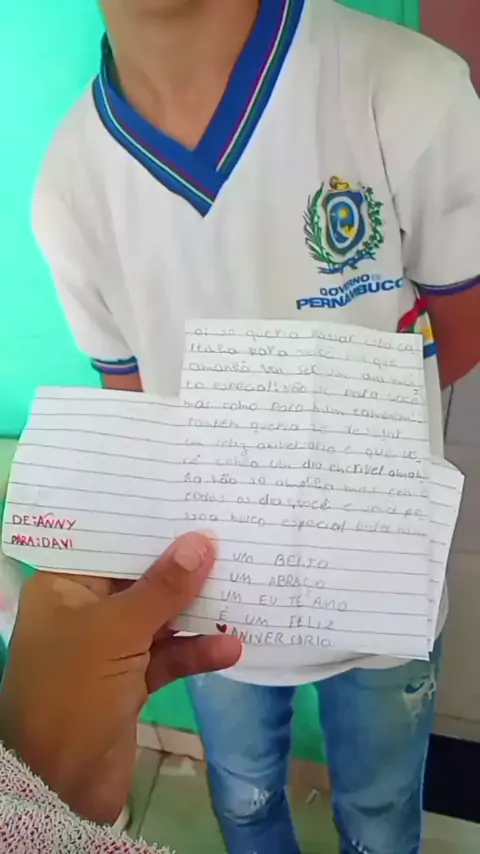 GOVERNO DE
PERNAMBUCO
oi so queria passar
carta para você
amanhã vai ser um dia mui
to especial não so para você
mas como para mim tambem
tambem queria te desejar
um feliz aniversario e que vo
cê tenha um dia encrivel aman
ha não so amanha mas
todos os dias, você é uma pe
ssoa muito especial para mim
DE: ANNY
PARA: DAVI
UM BEIJO
UM ABRAÇO
UM EU TE AMO
E UM FELIZ
♥ANIVERSÁRIO